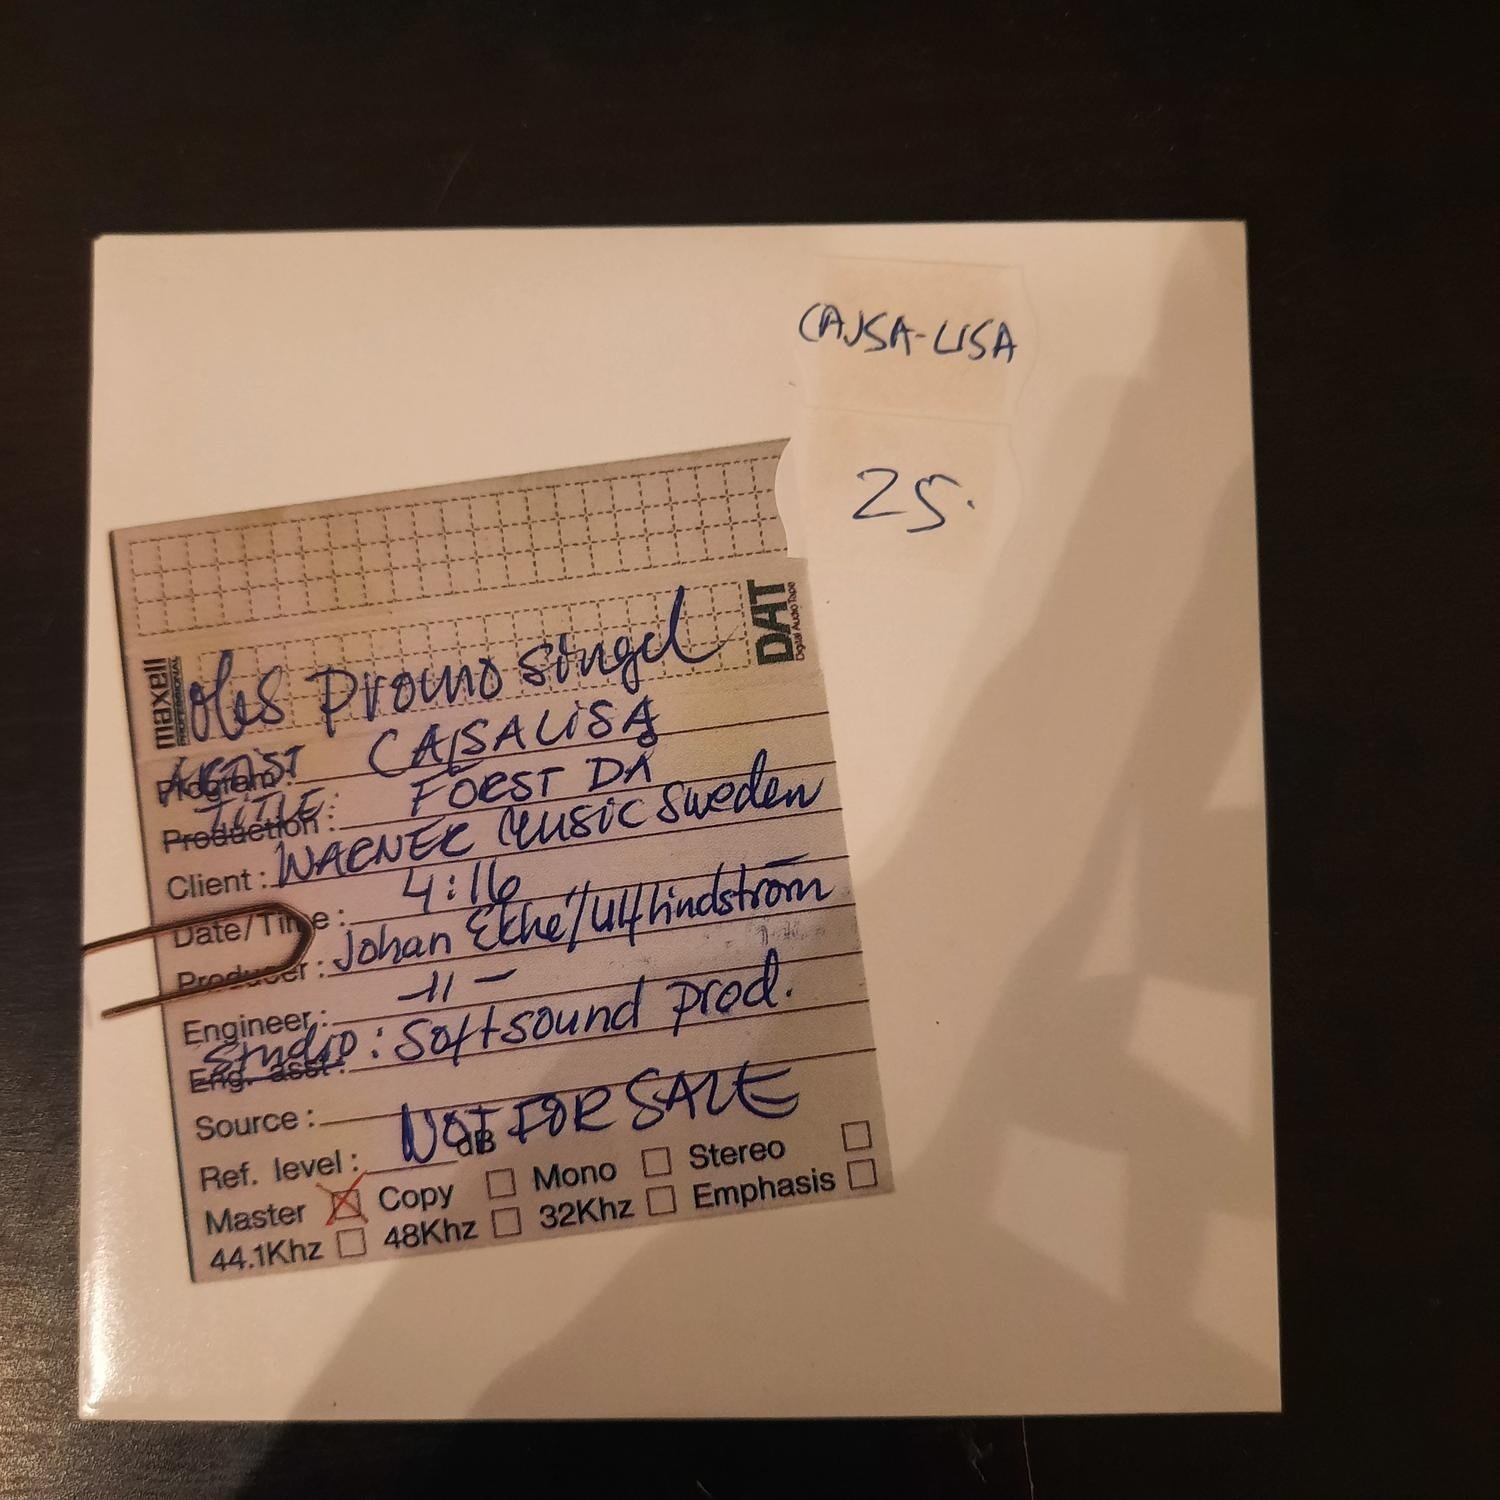 CAJSA-LISA
25.
DAT
Digital Audio Tape
maxell
PROFESSIONAL
Obs Promo singel
Program: ARTIST CAJSALISA
Production: TITLE: FÖRST DÅ
Client: WARNER MUSIC Sweden
Date/Time: 4:16
Producer: Johan Ekhé/Ulf Lindström
Engineer: -11-
Eng. asst: Studio: Softsound prod.
Source:
NOT FOR SALE
Ref. level: dB
Master Copy Mono Stereo
44.1Khz 48Khz 32Khz Emphasis